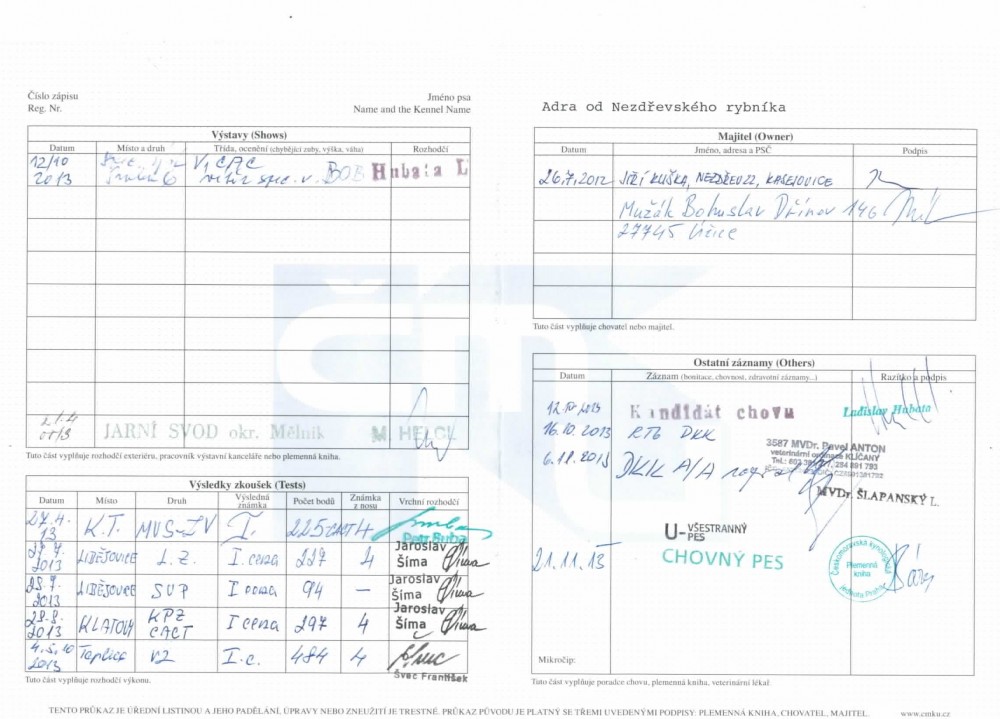 Číslo zápisu
Reg. Nr.
Jméno psa
Name and the Kennel Name
Výstavy (Shows)
Datum Místo a druh Třída, ocenění (chybějící zuby, výška, váha) Rozhodčí
12/10 V1 CAC Hubata L
2013 vítěz spec. v. BOB
JARNÍ SVOD okr. Mělník M. HELCL
Tuto část vyplňuje rozhodčí exteriéru, pracovník výstavní kanceláře nebo plemenná kniha.
Výsledky zkoušek (Tests)
Datum Místo Druh Výsledná známka Počet bodů Známka z nosu Vrchní rozhodčí
27.4. 13 K.T. MVS-IV I. 225 CACT 4 Petr Buba
2013 LIBĚJOVICE L.Z. I cena 227 4 Jaroslav Šíma
2013 LIBĚJOVICE SVP I cena 94 — Jaroslav Šíma
28.8. 2013 KLATOVY KPZ CACT I cena 297 4 Jaroslav Šíma
2013 Teplice VZ I.c. 484 4 Švec František
Tuto část vyplňuje rozhodčí výkonu.
Adra od Nezdřevského rybníka
Majitel (Owner)
Datum Jméno, adresa a PSČ Podpis
26.7.2012 JIŘÍ KUŠKA, NEZDŘEV 22, KASEJOVICE
Mužák Bohuslav Dřínov 146
27745 Úžice
Tuto část vyplňuje chovatel nebo majitel.
Ostatní záznamy (Others)
Datum Záznam (bonitace, chovnost, zdravotní záznamy...) Razítko a podpis
12.IV 2013 Kandidát chovu Ladislav Hubata
16.10.2013 RTG DKK 3587 MVDr. Pavel ANTON
veterinární ordinace KLÍČANY
6.11.2013 DKK A/A
MVDr. ŠLAPANSKÝ L.
U-VŠESTRANNÝ PES
21.11.13 CHOVNÝ PES
Českomoravská kynologická jednota Praha
Plemenná kniha
Mikročip:
Tuto část vyplňuje poradce chovu, plemenná kniha, veterinární lékař.
TENTO PRŮKAZ JE ÚŘEDNÍ LISTINOU A JEHO PADĚLÁNÍ, ÚPRAVY NEBO ZNEUŽITÍ JE TRESTNÉ. PRŮKAZ PŮVODU JE PLATNÝ SE TŘEMI UVEDENÝMI PODPISY: PLEMENNÁ KNIHA, CHOVATEL, MAJITEL. www.cmku.cz